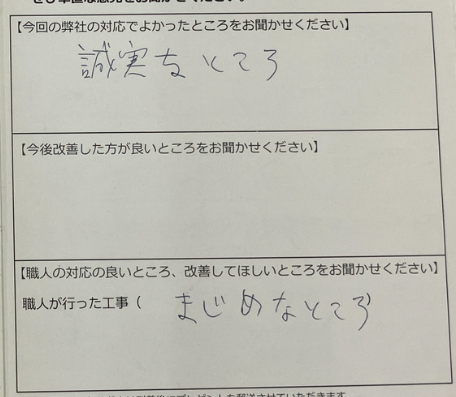 【今回の弊社の対応でよかったところをお聞かせください】
誠実なところ
【今後改善した方が良いところをお聞かせください】
【職人の対応の良いところ、改善してほしいところをお聞かせください】
職人が行った工事（ まじめなところ）